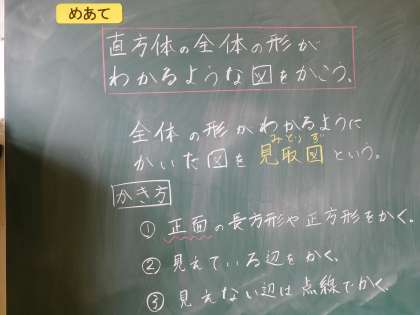 めあて
直方体の全体の形が
わかるような図をかこう。
全体の形がわかるように
みとりず
かいた図を見取図という。
かき方
① 正面の長方形や正方形をかく。
② 見えている辺をかく。
③ 見えない辺は点線でかく。